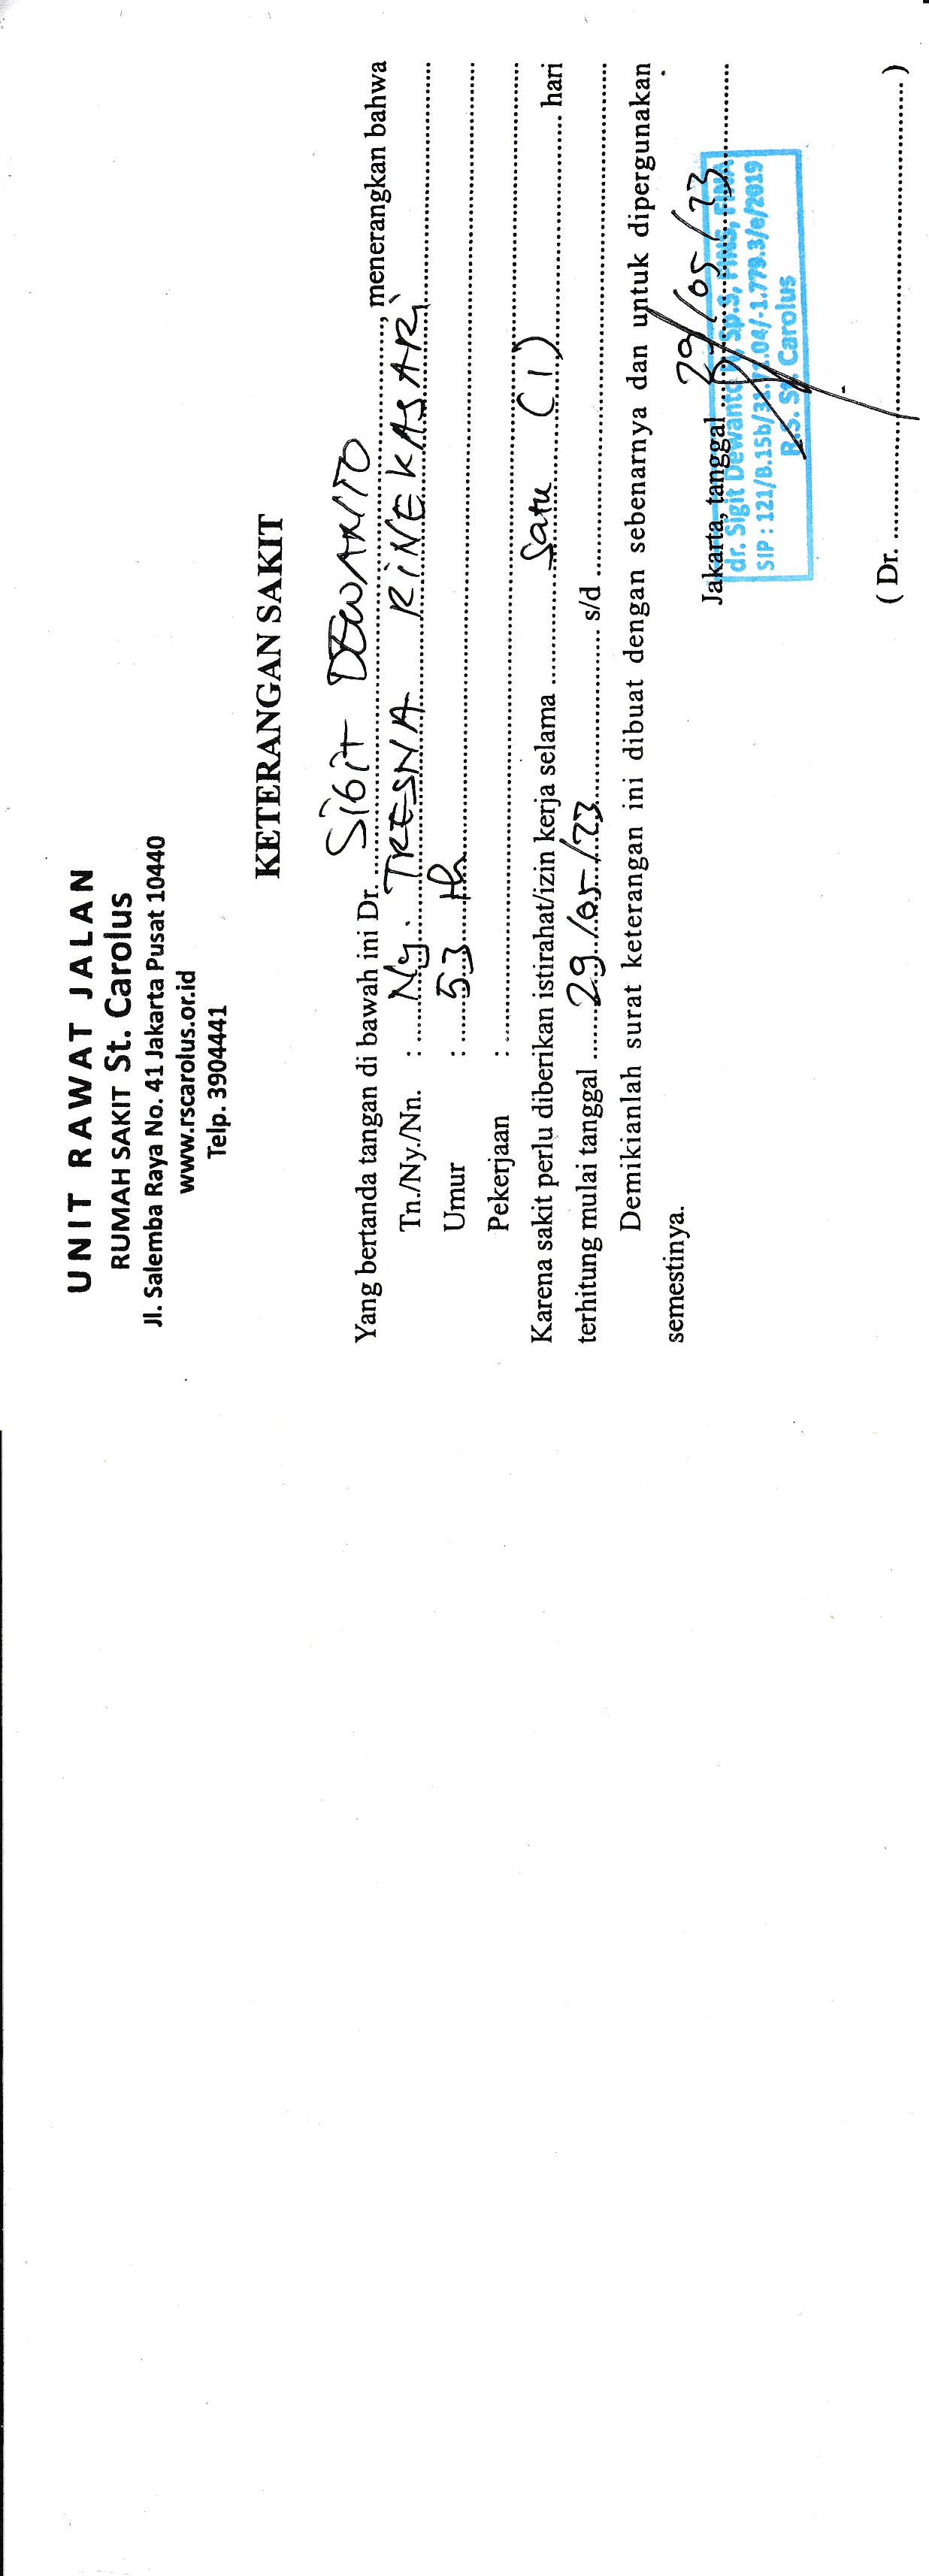 UNIT RAWAT JALAN
RUMAH SAKIT St. Carolus
Jl. Salemba Raya No. 41 Jakarta Pusat 10440
www.rscarolus.or.id
Telp. 3904441
KETERANGAN SAKIT
Yang bertanda tangan di bawah ini Dr. Sigit DEWANTO, menerangkan bahwa
Tn./Ny./Nn. : Ny. TRESNA RINEKASARI
Umur : 53 th
Pekerjaan :
Karena sakit perlu diberikan istirahat/izin kerja selama Satu (1) hari
terhitung mulai tanggal 29/05/23 s/d
Demikianlah surat keterangan ini dibuat dengan sebenarnya dan untuk dipergunakan
semestinya.
Jakarta, tanggal 29/05/23
dr. Sigit Dewanto Sp.S, FINS, FINA
SIP : 121/B.15b/31. .04/-1.779.3/e/2019
R.S. St. Carolus
( Dr. )